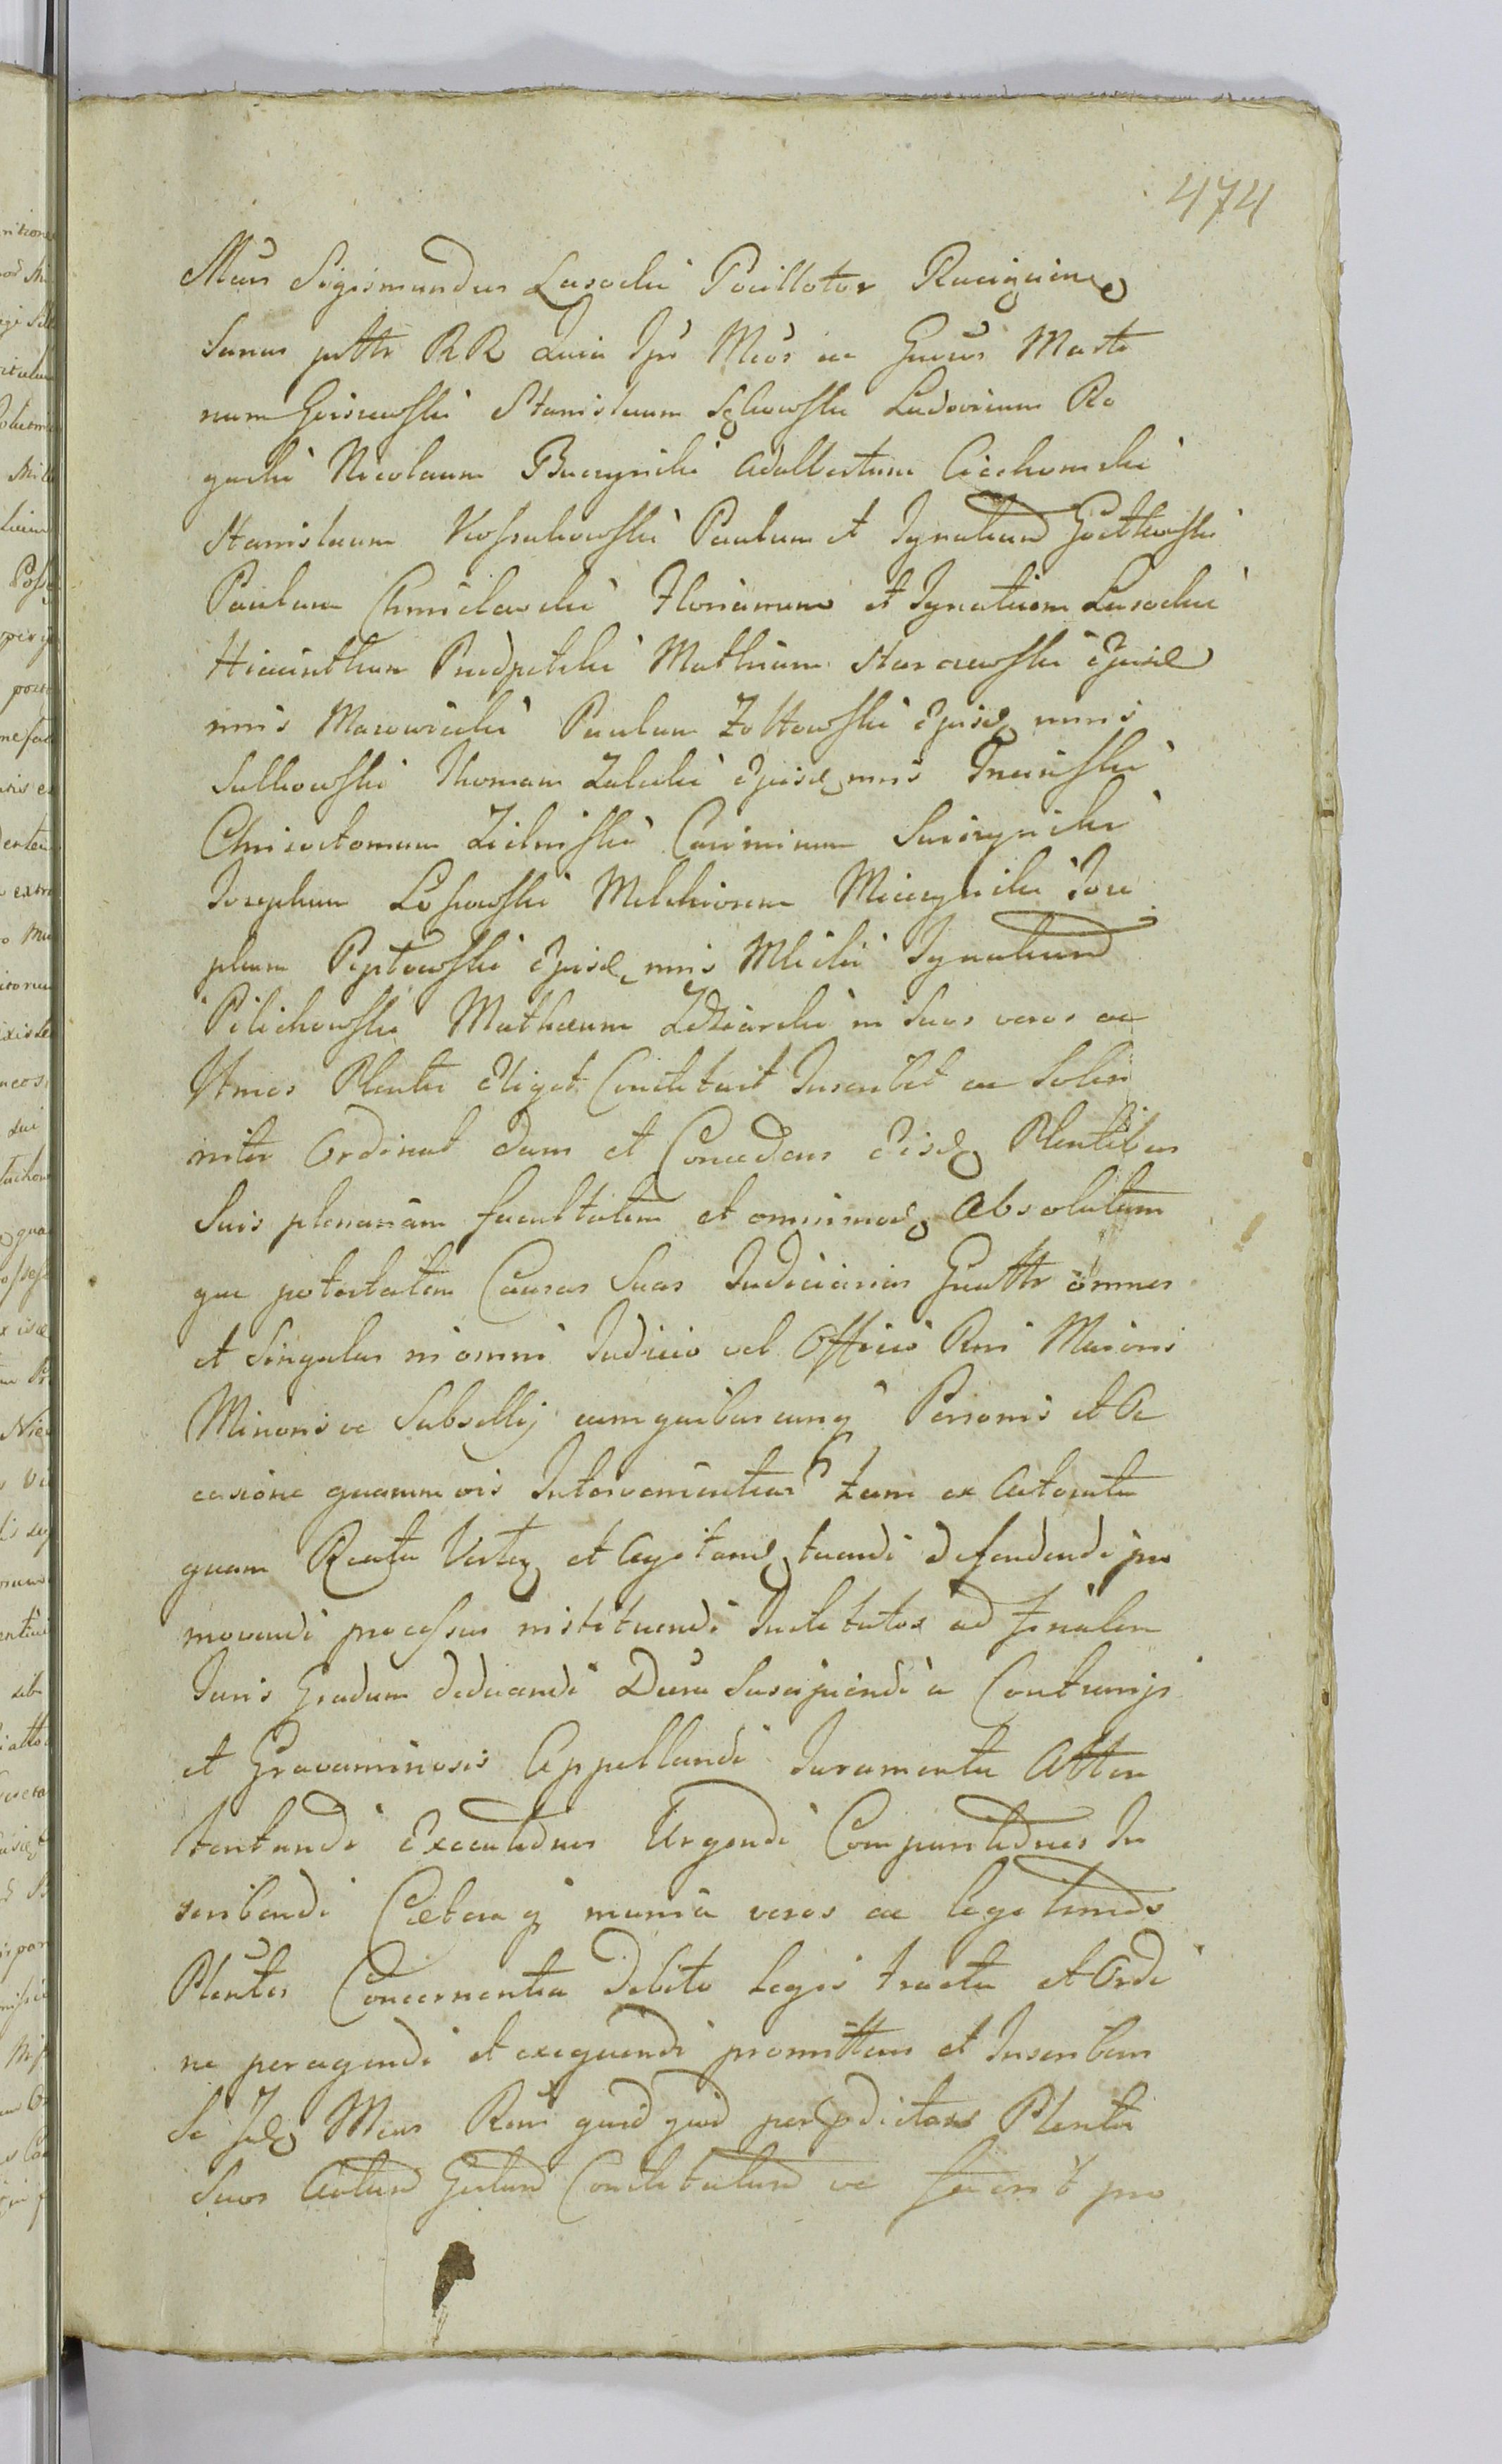 474
Mcus Sigismundus Lasocki Pocillator Raciąen
Sanus pttr RR Quia Ips Mcos ac Gnosos Marti
num Goisewski Stanislaum Ludovicum Ro
gacki Nicolaum Buczynski Adalbertum Ciechomski
Stanislaum Kossakowski Paulum et Ignatium Goctkowski
Paulum Chmielewski Florianum et Ignatium Lasockie
Hiacinthum Mathiam Starczewski Ejusd
mnis Mazowiecki Paulum Zołtowski Ejusd nmis
Sulkowski Thomam Zaleski Ejusd nnis
Chrisostomum Zielinski Casimirum Suszczynski
Josephum Lossowski Melchiorem Mieczynski Jose
phum Peptowski Ejusd nnis Mlicki Ignatium
Pilichowski Mathaeum Zdziarski in Suos veros ac
Plentes Eligit Constituit Inscribit ac Solen
niter Ordinat dans et Concedens Eisd Plentibus
Suis plenariam facultatem et omnimod Absolutam
que potestatem Causas Suas Judiciarias Gnalttr omnes
et Singulas in omni Judicio vel Officio Rni Maioris
Minoris ve Subsellij cum quibuscunq Personis et Oc
casione quamvis Intervenientium tam ex Actoratu
quam Reatu Vertt et Agitand tuendi defendendi pro
movendi processus instituendi Institutos ad finalem
Juris Gradum deducendi Dcta Suscipiendi a Contrariis
et Gravaminosis Appellandi Juramenta Atten
tentandi Executiones Urgendi Comparitiones In
scribendi Caetera q munia veros ac legitimos
Plentes Concernentia debito Legis tractu et Ordi
ne peragendi et exequendi promittens et Inscribens
Se Id Mcus Rcns quid quid per pdictos Plentes
Suos Actum Gestum Constitutum ve fuerit pro